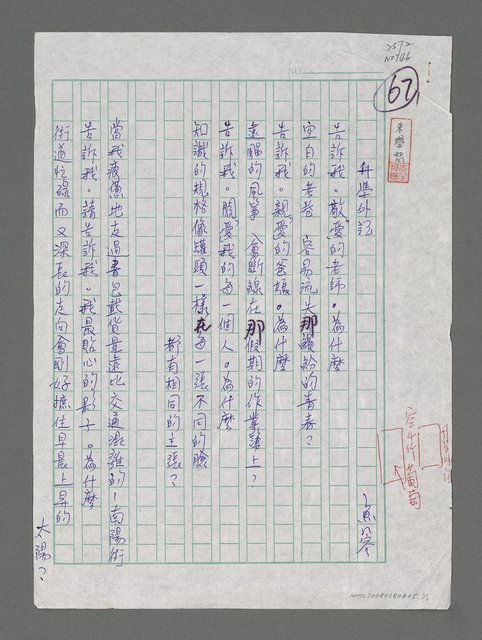 NO
62
升學外記
告訴我。敬愛的老師。為什麼
空白的考卷 容易流失那繽紛的青春?
告訴我。親愛的爸媽。為什麼
遠颺的風箏 會斷線在那假期的作業簿上?
告訴我。關愛我的每一個人。為什麼
知識的規格像罐頭一樣在每一張不同的臉
都有相同的主張?
當我疲憊地走過書包載貨量遠比交通混雜的-南陽街
告訴我。請告訴我。我最貼心的影子。為什麼
街道忙碌而又深長的走向會剛好擋住早晨上昇的
太陽?